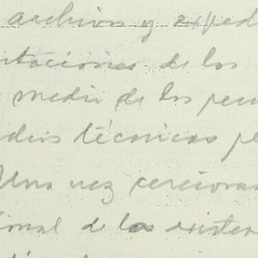 archivos y exped
taciones de los
medio de los peri
dios técnicos pe
Una vez cerciora
onal de los exister